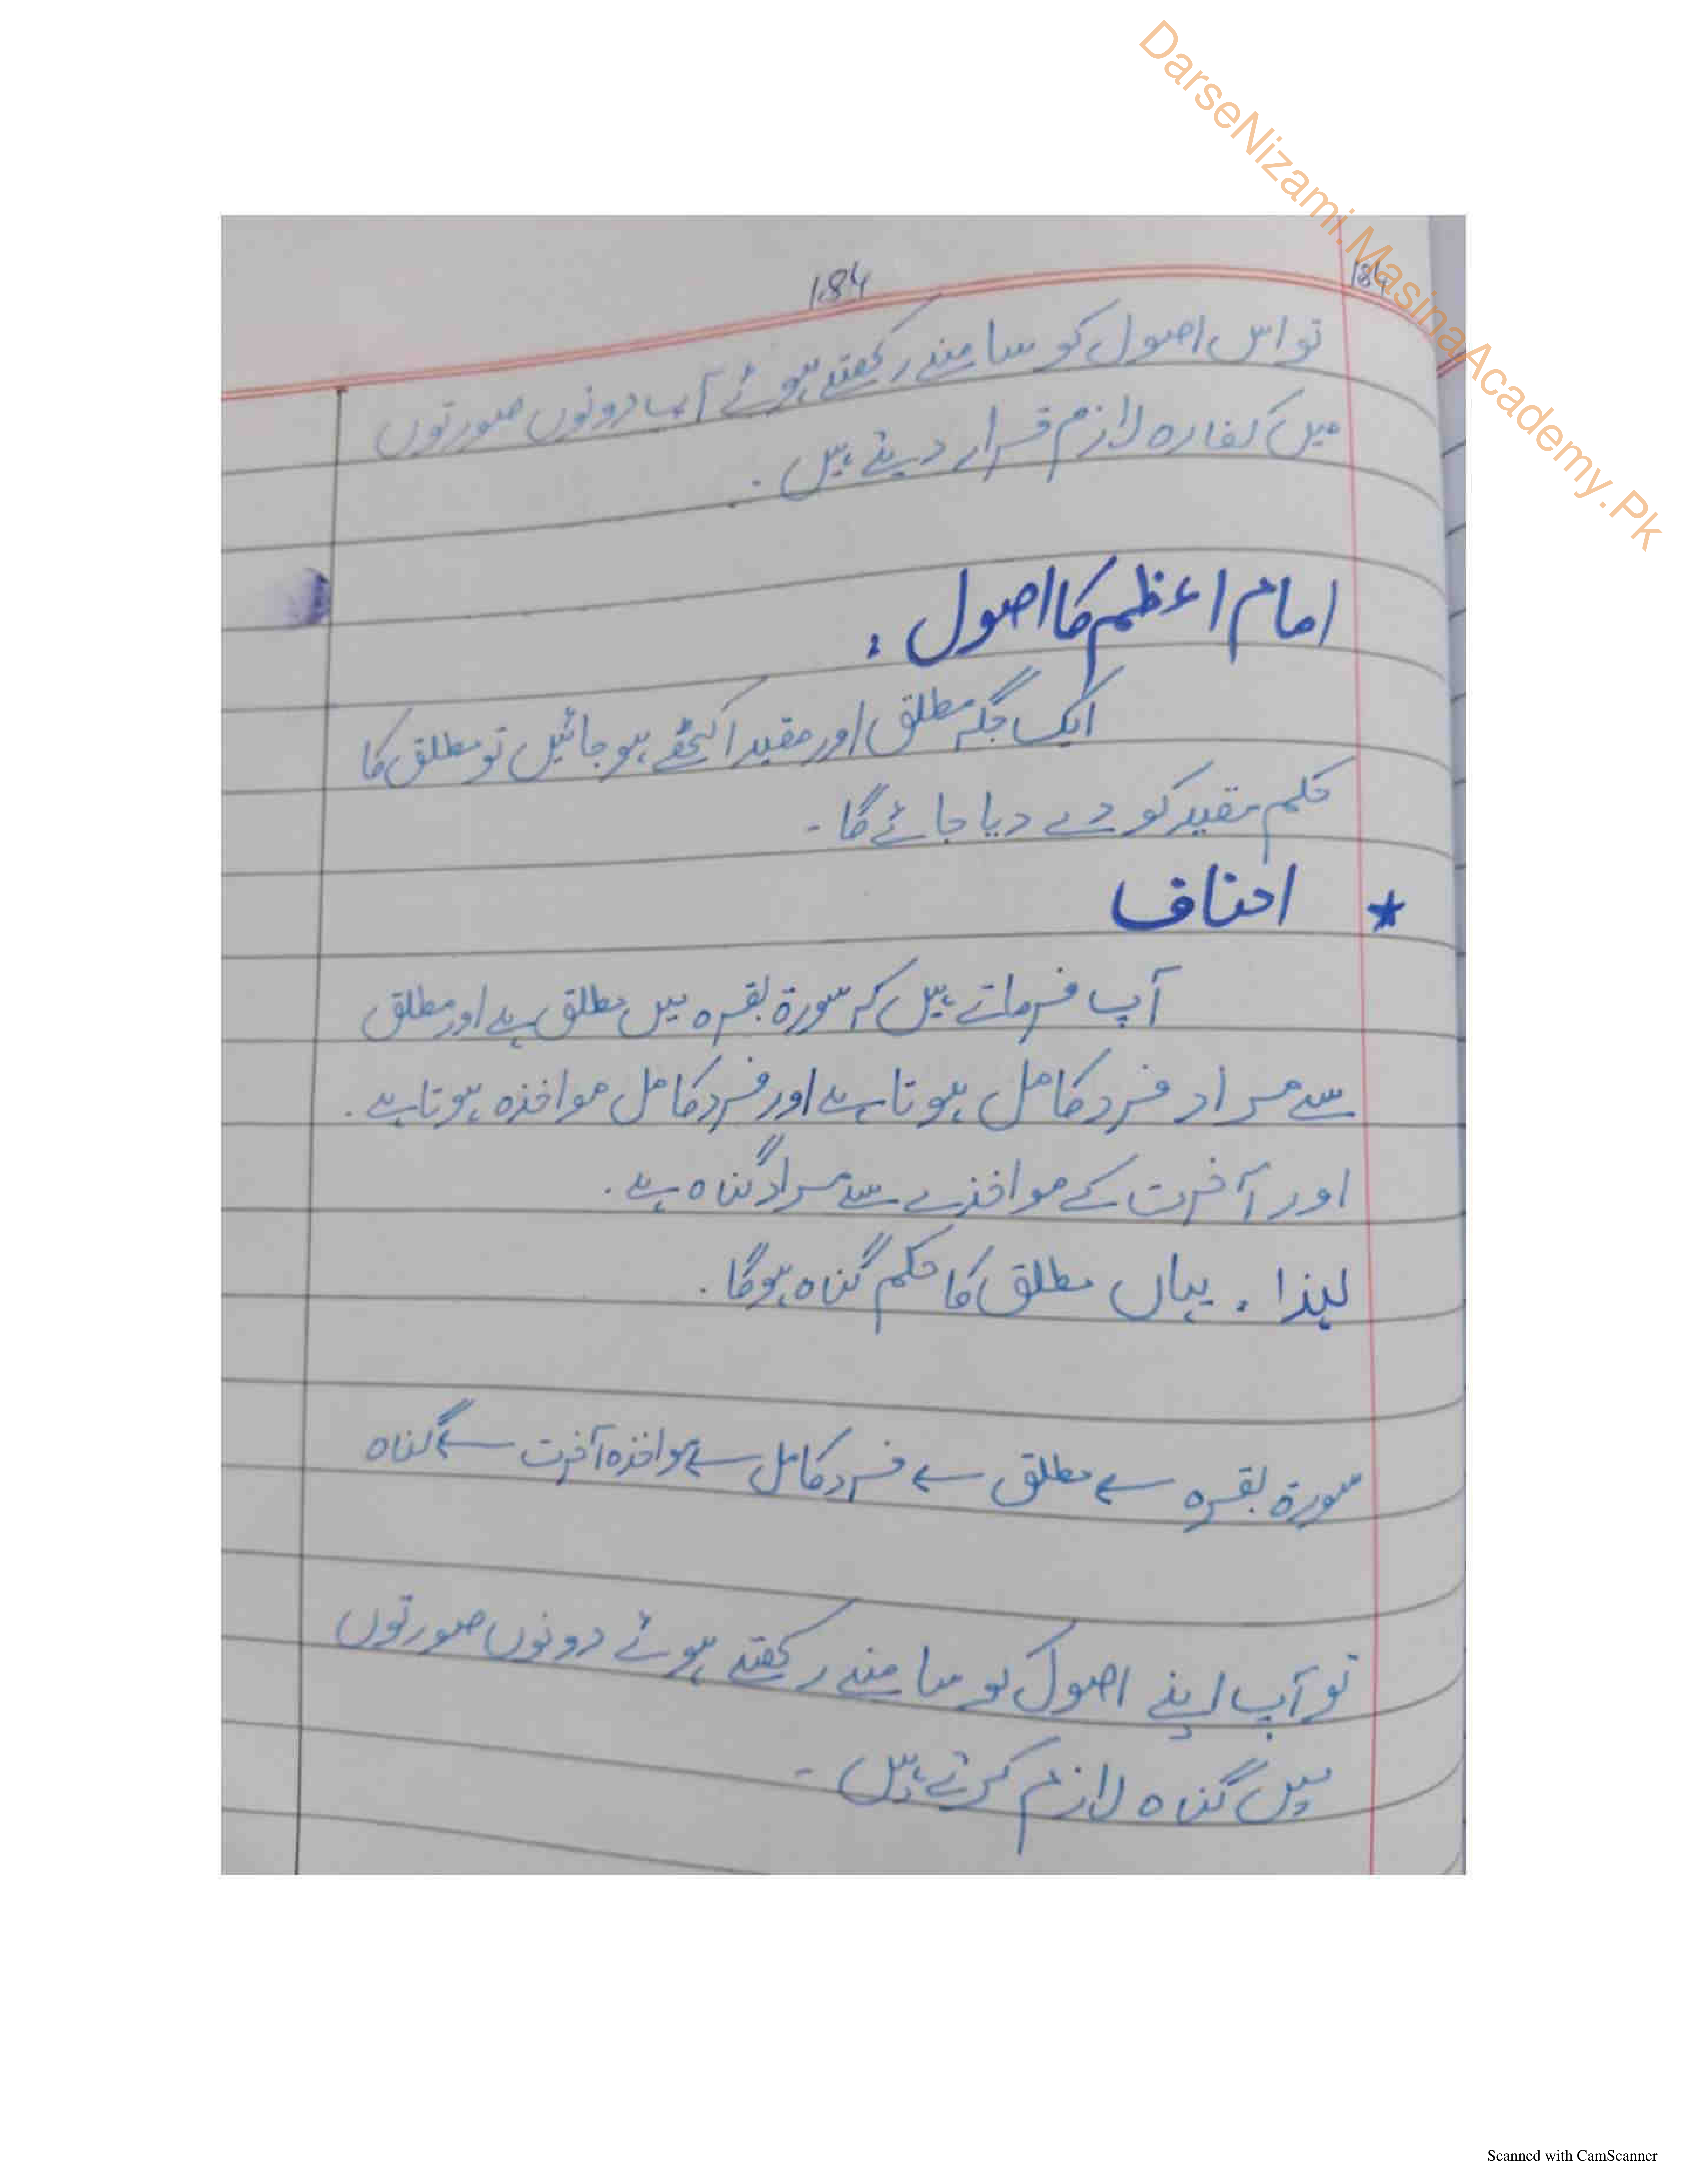 DarseNizami.MasinaAcademy.Pk
184
184
تو اس اصول کو سامنے رکھتے ہوئے آپ دونوں صورتوں
میں کفارہ لازم قرار دیتے ہیں ۔
امام اعظم کا اصول :
ایک جگہ مطلق اور مقید اکٹھے ہو جائیں تو مطلق کا
حکم مقید کو دے دیا جائے گا ۔
* احناف
آپ فرماتے ہیں کہ سورۃ بقرہ میں مطلق ہے اور مطلق
سے مراد فرد کامل ہوتا ہے اور فرد کامل مواخذہ ہوتا ہے ۔
اور آخرت کے مواخذے سے مراد گناہ ہے ۔
لہذا ، یہاں مطلق کا حکم گناہ ہوگا ۔
سورۃ بقرہ ← مطلق ← فرد کامل ← مواخذہ آخرت ← گناہ
تو آپ اپنے اصول کو سامنے رکھتے ہوئے دونوں صورتوں
میں گناہ لازم کرتے ہیں ۔
Scanned with CamScanner